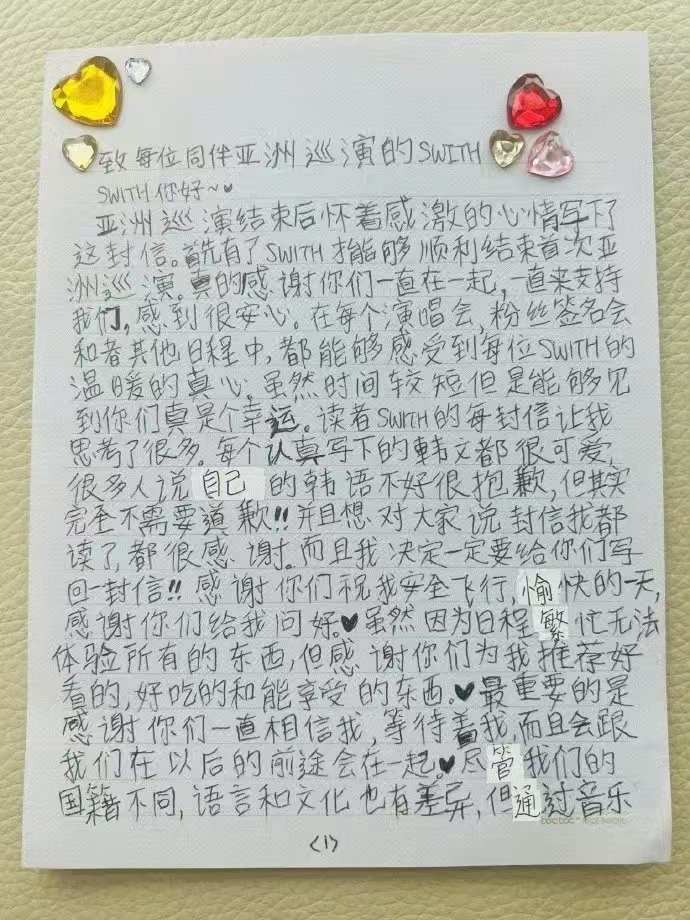 致每位同伴亚洲巡演的SWITH
SWITH你好~♥
亚洲巡演结束后怀着感激的心情写下了
这封信。首先有了SWITH才能够顺利结束首次亚
洲巡演。真的感谢你们一直在一起,一直来支持
我们,感到很安心。在每个演唱会,粉丝签名会
和者其他日程中,都能够感受到每位SWITH的
温暖的真心。虽然时间较短但是能够见
到你们真是个幸运。读者SWITH的每封信让我
思考了很多。每个认真写下的韩文都很可爱,
很多人说自己的韩语不好很抱歉,但其实
完全不需要道歉!!并且想对大家说封信我都
读了,都很感谢。而且我决定一定要给你们写
回一封信!!感谢你们祝我安全飞行,愉快的一天,
感谢你们给我问好。♥虽然因为日程繁忙无法
体验所有的东西,但感谢你们为我推荐好
看的,好吃的和能享受的东西。♥最重要的是
感谢你们一直相信我,等待着我,而且会跟
我们在以后的前途会在一起。♥尽管我们的
国籍不同,语言和文化也有差异,但通过音乐
<1>